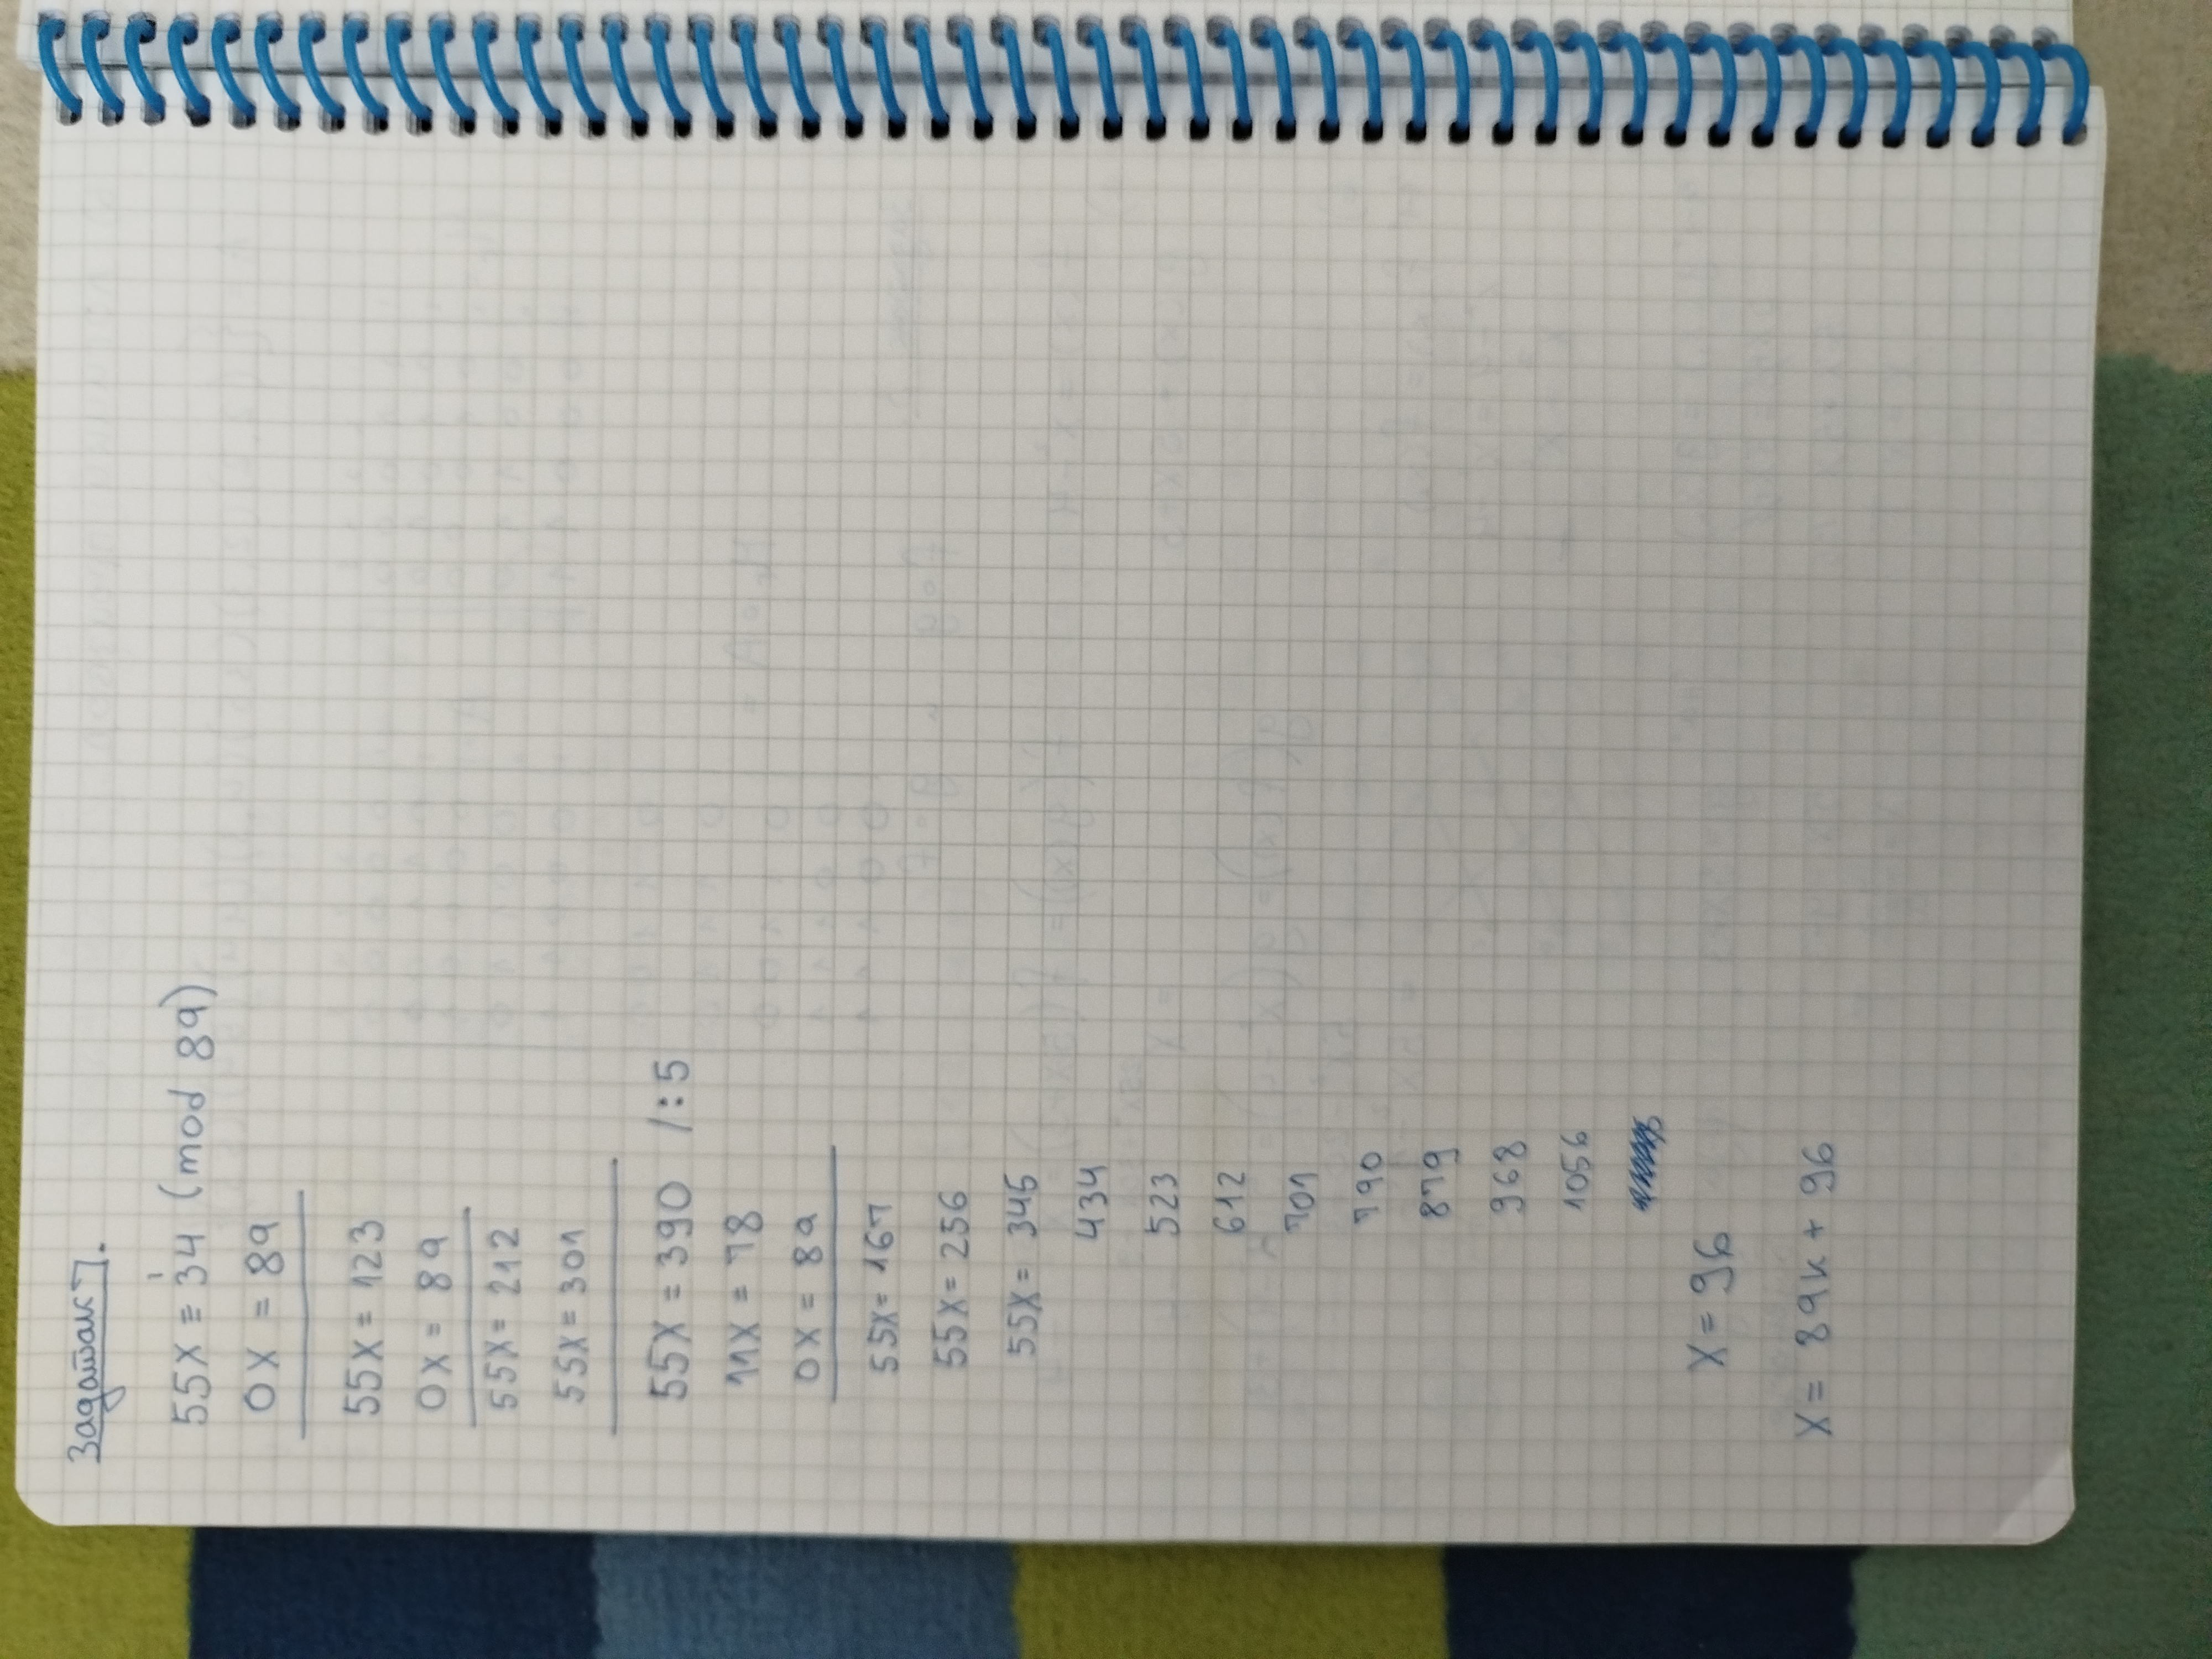 Задатак 7.
55x ≡ 34 (mod 89)
0x = 89
55x = 123
0x = 89
55x = 212
55x = 301
55x = 390 /:5
11x = 78
0x = 89
55x = 167
55x = 256
55x = 345
434
523
612
701
790
879
968
1056
x = 96
x = 89k + 96